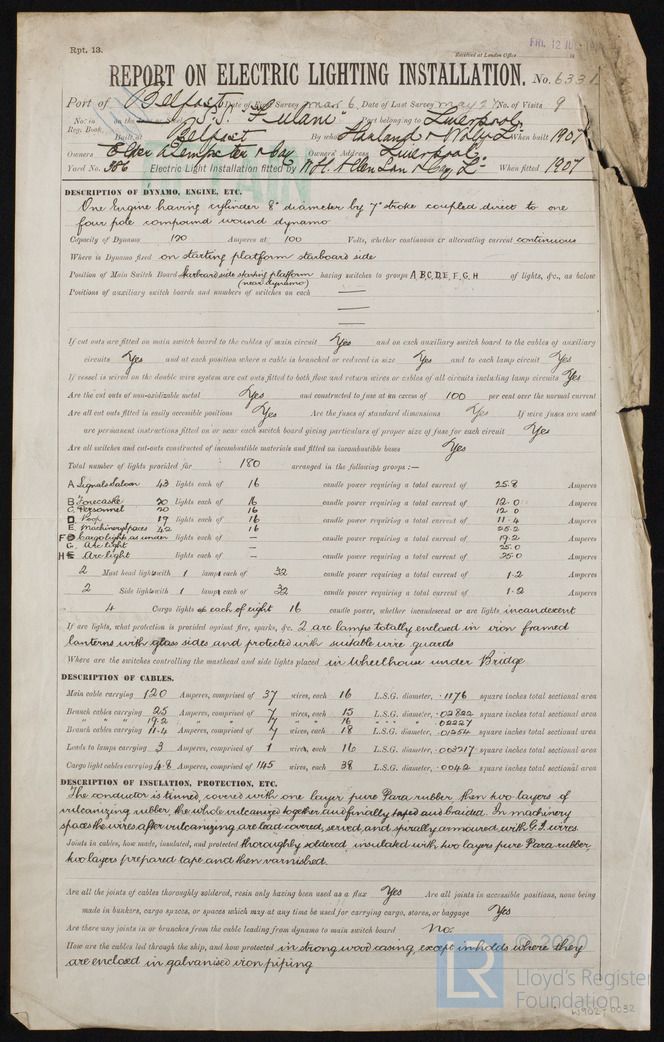 Rpt. 13.
Received at London Office
FRI. 12 JUL
REPORT ON ELECTRIC LIGHTING INSTALLATION. No. 6331
Port of Belfast Date of First Survey Mar 6 Date of Last Survey May 27 No. of Visits 9
No. in Reg. Book on the S.S. "Fulani" Port belonging to Liverpool
Built at Belfast By whom Harland & Wolff Ld When built 1907
Owners Elder Dempster & Coy Owners' Address Liverpool
Yard No. 386 Electric Light Installation fitted by W. H. Allen Son & Coy Ld When fitted 1907
DESCRIPTION OF DYNAMO, ENGINE, ETC.
One Engine having cylinder 8" diameter by 7" stroke coupled direct to one
four pole compound wound dynamo
Capacity of Dynamo 120 Amperes at 100 Volts, whether continuous or alternating current continuous
Where is Dynamo fixed on starting platform starboard side
Position of Main Switch Board Starboard side starting platform (near dynamo) having switches to groups A, B, C, D, E, F, G, H of lights, &c., as below
Positions of auxiliary switch boards and numbers of switches on each —
—
—
If cut outs are fitted on main switch board to the cables of main circuit Yes and on each auxiliary switch board to the cables of auxiliary
circuits Yes and at each position where a cable is branched or reduced in size Yes and to each lamp circuit Yes
If vessel is wired on the double wire system are cut outs fitted to both flow and return wires or cables of all circuits including lamp circuits Yes
Are the cut outs of non-oxidizable metal Yes and constructed to fuse at an excess of 100 per cent over the normal current
Are all cut outs fitted in easily accessible positions Yes Are the fuses of standard dimensions Yes If wire fuses are used
are permanent instructions fitted on or near each switch board giving particulars of proper size of fuse for each circuit Yes
Are all switches and cut-outs constructed of incombustible materials and fitted on incombustible bases Yes
Total number of lights provided for 180 arranged in the following groups :—
A Signals & Saloon 43 lights each of 16 candle power requiring a total current of 25.8 Amperes
B Forecastle 20 lights each of 16 candle power requiring a total current of 12.0 Amperes
C Personnel 20 16 12.0
D Poop 19 lights each of 16 candle power requiring a total current of 11.4 Amperes
E Machinery Spaces 42 16 25.2
F Cargo light as under lights each of — candle power requiring a total current of 19.2 Amperes
G Arc light — 25.0
H Arc light lights each of — candle power requiring a total current of 25.0 Amperes
2 Mast head light with 1 lamp each of 32 candle power requiring a total current of 1.2 Amperes
2 Side light with 1 lamp each of 32 candle power requiring a total current of 1.2 Amperes
4 Cargo lights of each of eight 16 candle power, whether incandescent or arc lights incandescent
If arc lights, what protection is provided against fire, sparks, &c. 2 arc lamps totally enclosed in iron framed
lanterns with glass sides and protected with suitable wire guards
Where are the switches controlling the masthead and side lights placed in Wheelhouse under Bridge
DESCRIPTION OF CABLES.
Main cable carrying 120 Amperes, comprised of 37 wires, each 16 L.S.G. diameter, .1176 square inches total sectional area
Branch cables carrying 25 Amperes, comprised of 7 wires, each 15 L.S.G. diameter, .02822 square inches total sectional area
" " " 19.2 " " 7 " 16 " " .02227
Branch cables carrying 11.4 Amperes, comprised of 7 wires, each 18 L.S.G. diameter, .01254 square inches total sectional area
Leads to lamps carrying 3 Amperes, comprised of 1 wires, each 16 L.S.G. diameter, .003217 square inches total sectional area
Cargo light cables carrying 4.8 Amperes, comprised of 145 wires, each 38 L.S.G. diameter, .0042 square inches total sectional area
DESCRIPTION OF INSULATION, PROTECTION, ETC.
The conductor is tinned, covered with one layer pure Para rubber, then two layers of
vulcanizing rubber, the whole vulcanized together and finally taped and braided. In machinery
spaces the wires after vulcanizing are lead covered, served, and spirally armoured with G.I. wires
Joints in cables, how made, insulated, and protected thoroughly soldered, insulated with two layers pure Para rubber,
two layers prepared tape and then varnished.
Are all the joints of cables thoroughly soldered, resin only having been used as a flux Yes Are all joints in accessible positions, none being
made in bunkers, cargo spaces, or spaces which may at any time be used for carrying cargo, stores, or baggage Yes
Are there any joints in or branches from the cable leading from dynamo to main switch board No.
How are the cables led through the ship, and how protected in strong wood casing, except in holds where they
are enclosed in galvanised iron piping
© 2020
LR Lloyd's Register
Foundation
W9027-0032